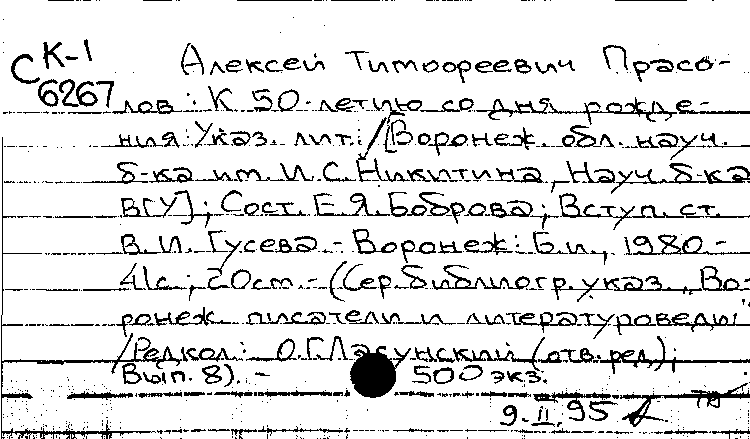 К-1
С
6267
Алексей Тимофеевич Прасо-
лов: К 50-летию со дня рожде-
ния: Указ. лит. / [Воронеж. обл. науч.
б-ка им. И.С. Никитина, Науч. б-ка
ВГУ]; Сост. Е.Я. Боброва; Вступ. ст.
В.И. Гусева. - Воронеж: Б.и., 1980. -
41с.; 20см. - (Сер. библиогр. указ. „Во-
ронеж. писатели и литературоведы"
/ Редкол.: О.Г. Ласунский (отв. ред.);
Вып. 8). - 500 экз.
9. II. 95